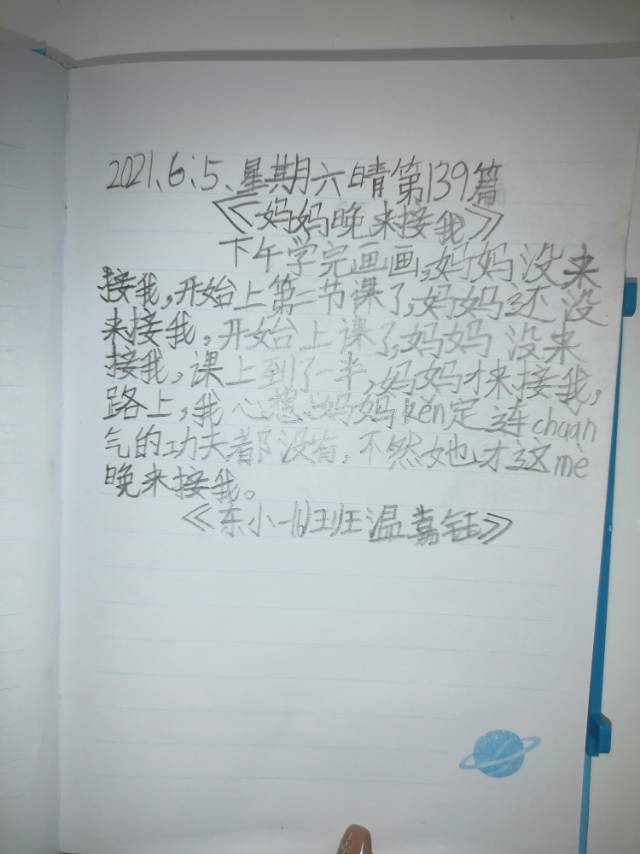 2021.6.5.星期六晴第139篇
《妈妈晚来接我》
下午学完画画,妈妈没来
接我,开始上第二节课了,妈妈还没
来接我,开始上课了,妈妈没来
接我,课上到了一半,妈妈才来接我,
路上,我心想:妈妈kěn定连chuan
气的功夫都没有,不然她才这me
晚来接我。
《东小一(16)班温嘉钰》